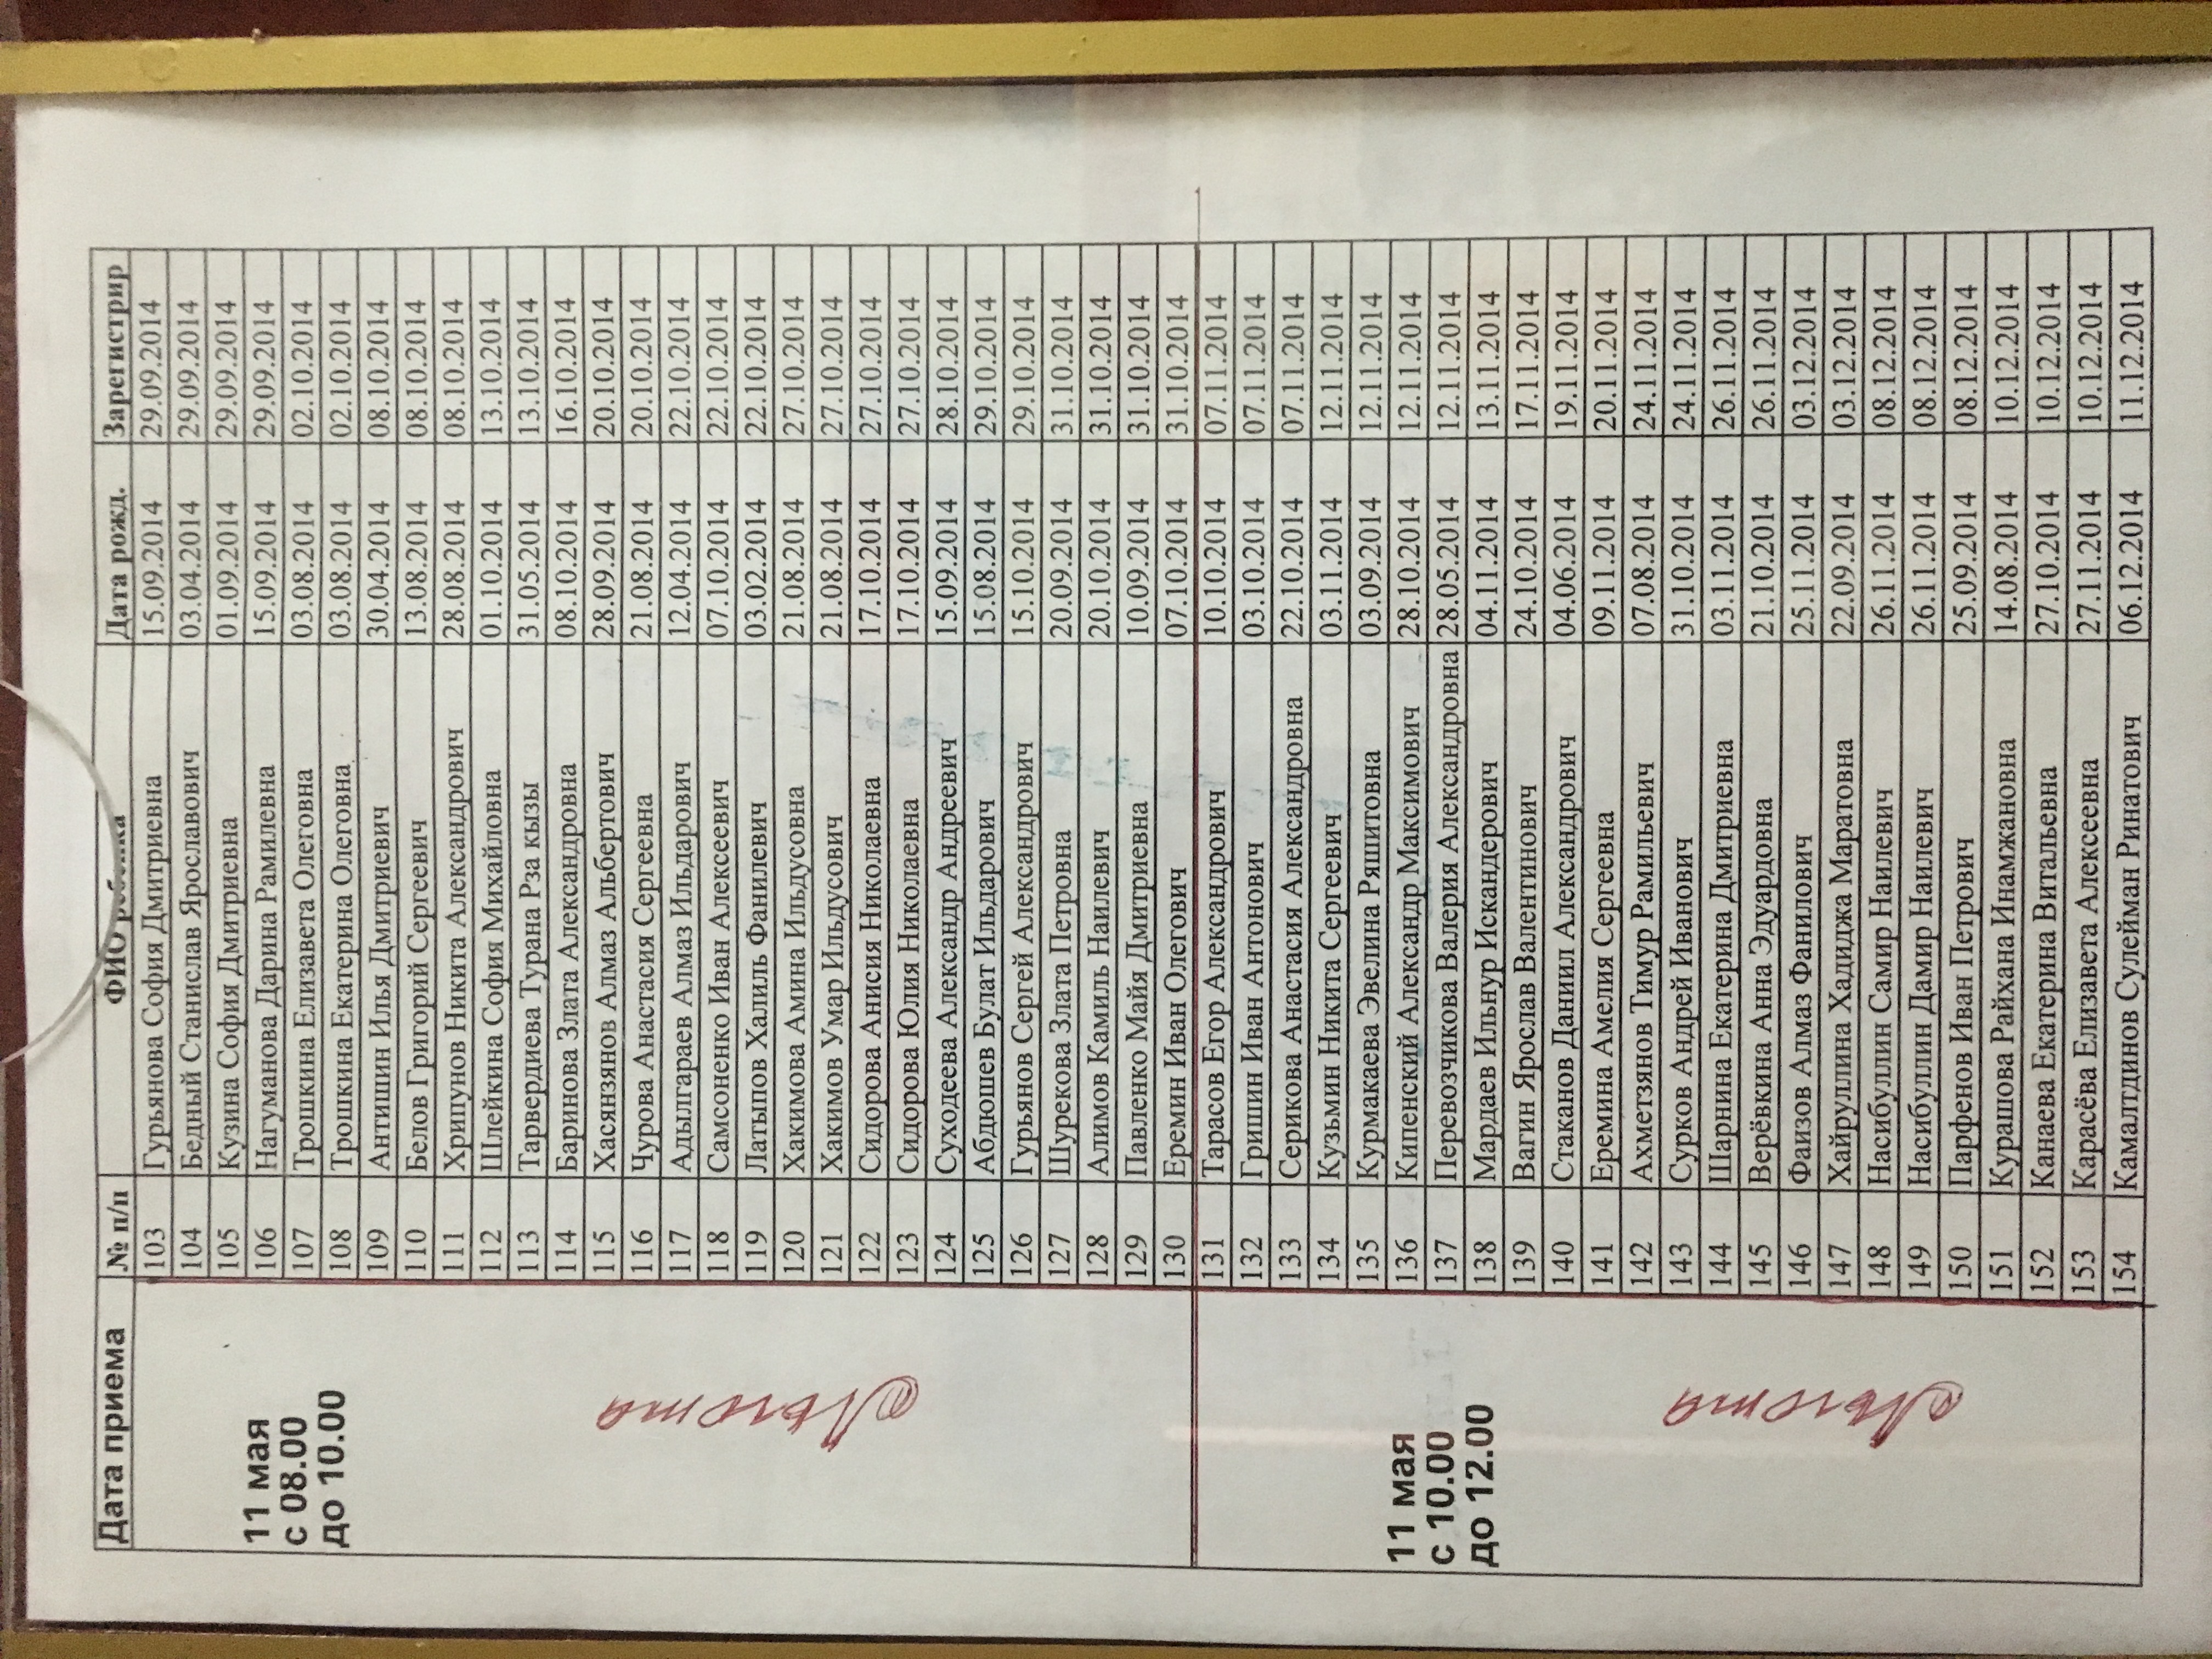 Дата приема № п/п ФИО ребенка Дата рожд. Зарегистрир
103 Гурьянова София Дмитриевна 15.09.2014 29.09.2014
104 Бедный Станислав Ярославович 03.04.2014 29.09.2014
105 Кузина София Дмитриевна 01.09.2014 29.09.2014
106 Нагуманова Дарина Рамилевна 15.09.2014 29.09.2014
107 Трошкина Елизавета Олеговна 03.08.2014 02.10.2014
108 Трошкина Екатерина Олеговна 03.08.2014 02.10.2014
109 Антишин Илья Дмитриевич 30.04.2014 08.10.2014
110 Белов Григорий Сергеевич 13.08.2014 08.10.2014
111 Хрипунов Никита Александрович 28.08.2014 08.10.2014
112 Шлейкина София Михайловна 01.10.2014 13.10.2014
113 Тарвердиева Турана Рза кызы 31.05.2014 13.10.2014
114 Баринова Злата Александровна 08.10.2014 16.10.2014
115 Хасянзянов Алмаз Альбертович 28.09.2014 20.10.2014
116 Чурова Анастасия Сергеевна 21.08.2014 20.10.2014
117 Адылгараев Алмаз Ильдарович 12.04.2014 22.10.2014
118 Самсоненко Иван Алексеевич 07.10.2014 22.10.2014
119 Латыпов Халиль Фанилевич 03.02.2014 22.10.2014
120 Хакимова Амина Ильдусовна 21.08.2014 27.10.2014
121 Хакимов Умар Ильдусович 21.08.2014 27.10.2014
122 Сидорова Анисия Николаевна 17.10.2014 27.10.2014
123 Сидорова Юлия Николаевна 17.10.2014 27.10.2014
124 Суходеева Александр Андреевич 15.09.2014 28.10.2014
125 Абдюшев Булат Ильдарович 15.08.2014 29.10.2014
126 Гурьянов Сергей Александрович 15.10.2014 29.10.2014
127 Шурекова Злата Петровна 20.09.2014 31.10.2014
128 Алимов Камиль Наилевич 20.10.2014 31.10.2014
129 Павленко Майя Дмитриевна 10.09.2014 31.10.2014
130 Еремин Иван Олегович 07.10.2014 31.10.2014
11 мая
с 08.00
до 10.00
Льгота
131 Тарасов Егор Александрович 10.10.2014 07.11.2014
132 Гришин Иван Антонович 03.10.2014 07.11.2014
133 Серикова Анастасия Александровна 22.10.2014 07.11.2014
134 Кузьмин Никита Сергеевич 03.11.2014 12.11.2014
135 Курмакаева Эвелина Ряшитовна 03.09.2014 12.11.2014
136 Кипенский Александр Максимович 28.10.2014 12.11.2014
137 Перевозчикова Валерия Александровна 28.05.2014 12.11.2014
138 Мардаев Ильнур Искандерович 04.11.2014 13.11.2014
139 Вагин Ярослав Валентинович 24.10.2014 17.11.2014
140 Стаканов Даниил Александрович 04.06.2014 19.11.2014
141 Еремина Амелия Сергеевна 09.11.2014 20.11.2014
142 Ахметзянов Тимур Рамильевич 07.08.2014 24.11.2014
143 Сурков Андрей Иванович 31.10.2014 24.11.2014
144 Шарнина Екатерина Дмитриевна 03.11.2014 26.11.2014
145 Верёвкина Анна Эдуардовна 21.10.2014 26.11.2014
146 Фаизов Алмаз Фанилович 25.11.2014 03.12.2014
147 Хайруллина Хадиджа Маратовна 22.09.2014 03.12.2014
148 Насибуллин Самир Наилевич 26.11.2014 08.12.2014
149 Насибуллин Дамир Наилевич 26.11.2014 08.12.2014
150 Парфенов Иван Петрович 25.09.2014 08.12.2014
151 Курашова Райхана Инамжановна 14.08.2014 10.12.2014
152 Канаева Екатерина Витальевна 27.10.2014 10.12.2014
153 Карасёва Елизавета Алексеевна 27.11.2014 10.12.2014
154 Камалтдинов Сулейман Ринатович 06.12.2014 11.12.2014
11 мая
с 10.00
до 12.00
Льгота